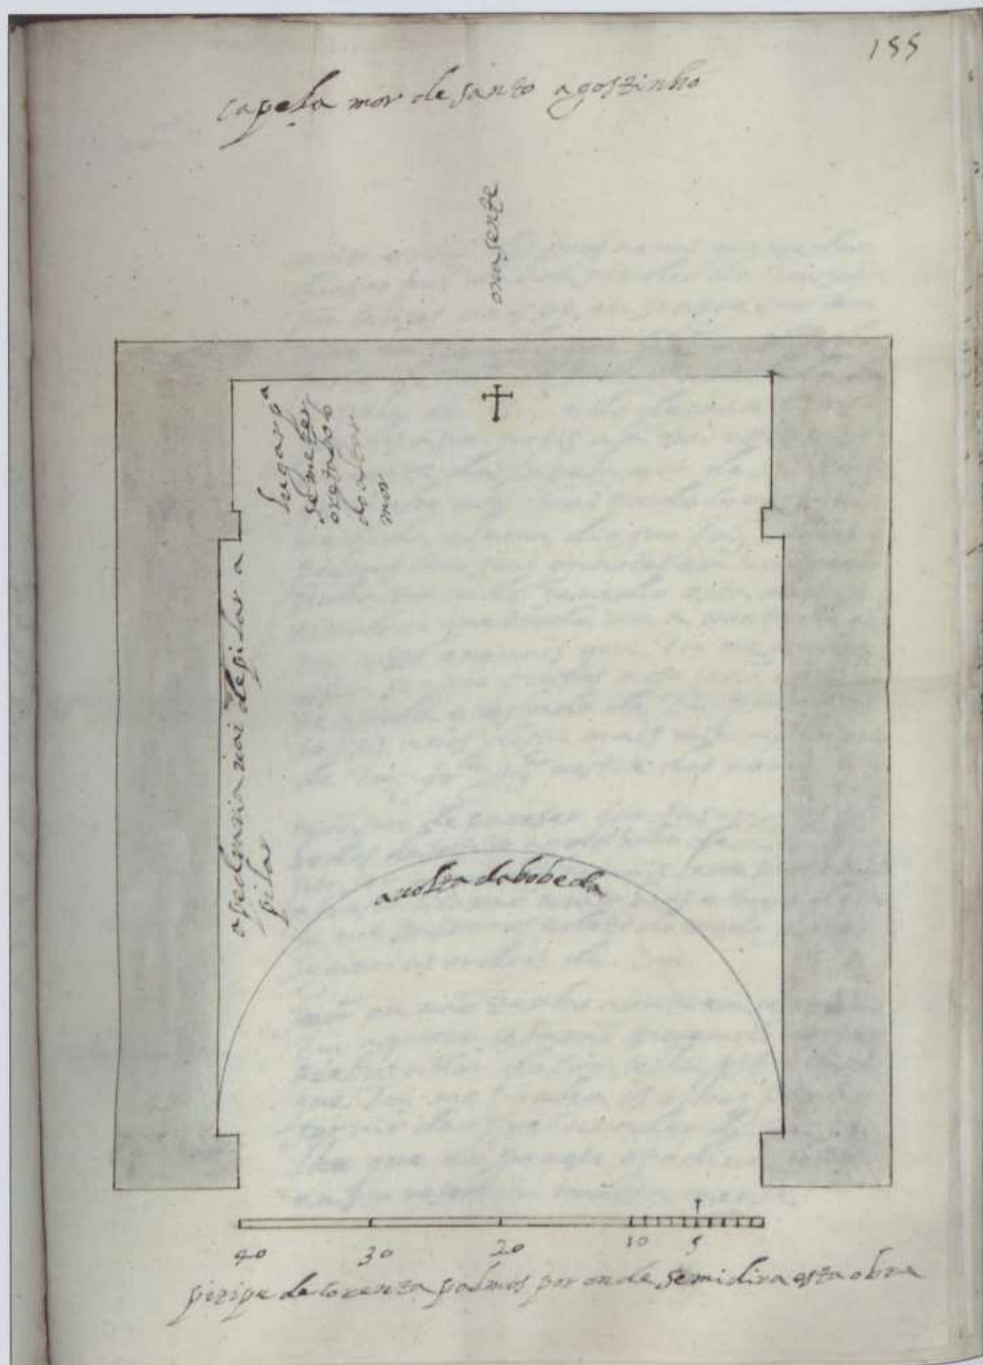 155
capela mor de santo agostinho
lugar p^a
se meter
o retabolo
do altar
mor
a pedraria vai de pilar a
pilar
a volta da bobeda
40 30 20 10 5
pitipe de corenta palmos por onde se midira esta obra